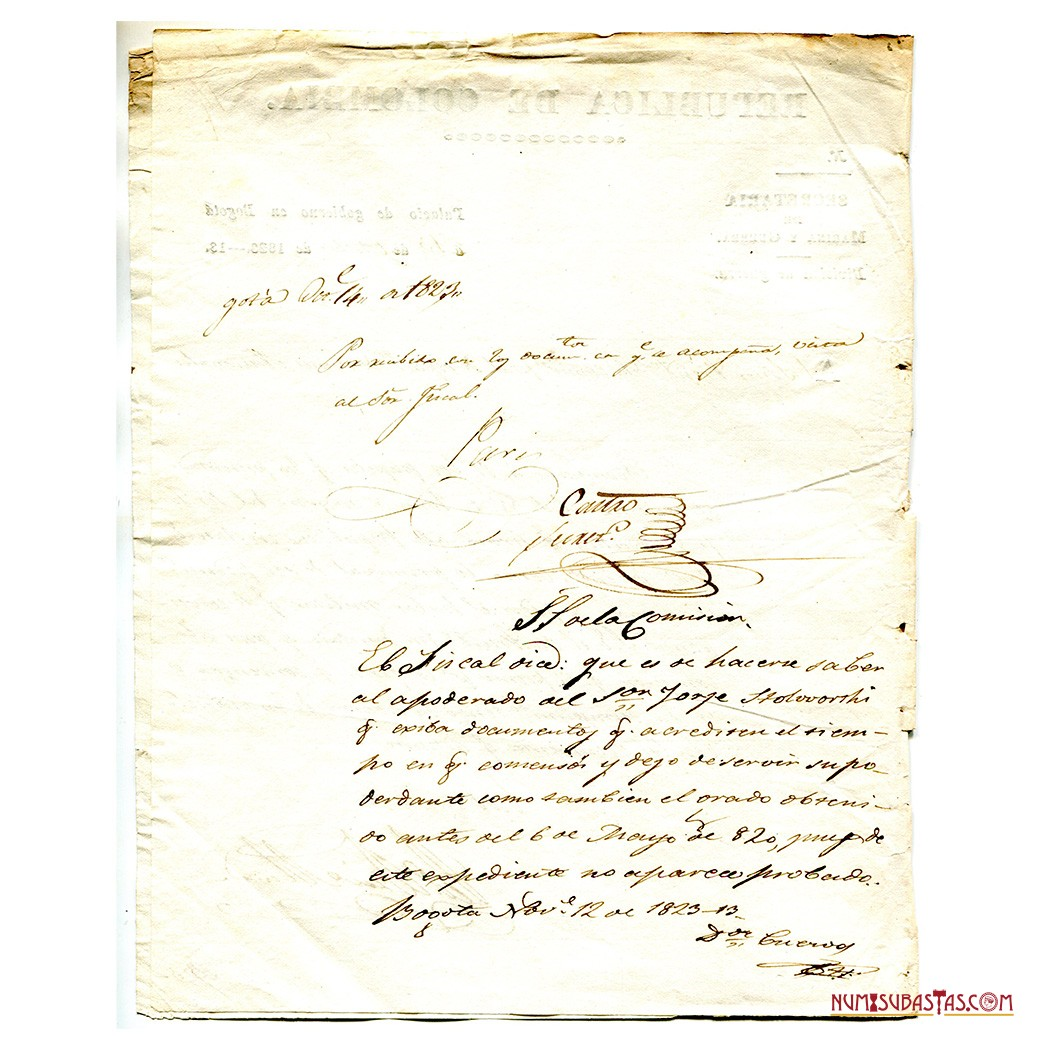 REPUBLICA DE COLOMBIA.
Nº.
SECRETARIA
DE
MARINA Y GUERRA.
Palacio de gobierno en Bogotá
de 1823.—13.
gotá 14,, de 1823,,
Por recibido con los documtos. en qe. se acompaña, vista
al Sor. Fiscal.
Paris
Castro
Secreto.
SS de la Comision.
El Fiscal dice: que es de hacerse saber
al apoderado del Sor. Jorje Stolovorshi
q. exiba documentos q. acrediten el tiem-
po en q. comensó y dejo de servir su po-
derdante como tambien el grado obteni-
do antes del 6 de Mayo de 820, pues de
este expediente no aparece probado.
Bogota Nove. 12 de 1823-13.
Dor. Cuervo
NUMISUBASTAS.COM